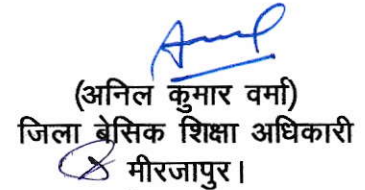 (अनिल कुमार वर्मा)
जिला बेसिक शिक्षा अधिकारी
मीरजापुर।